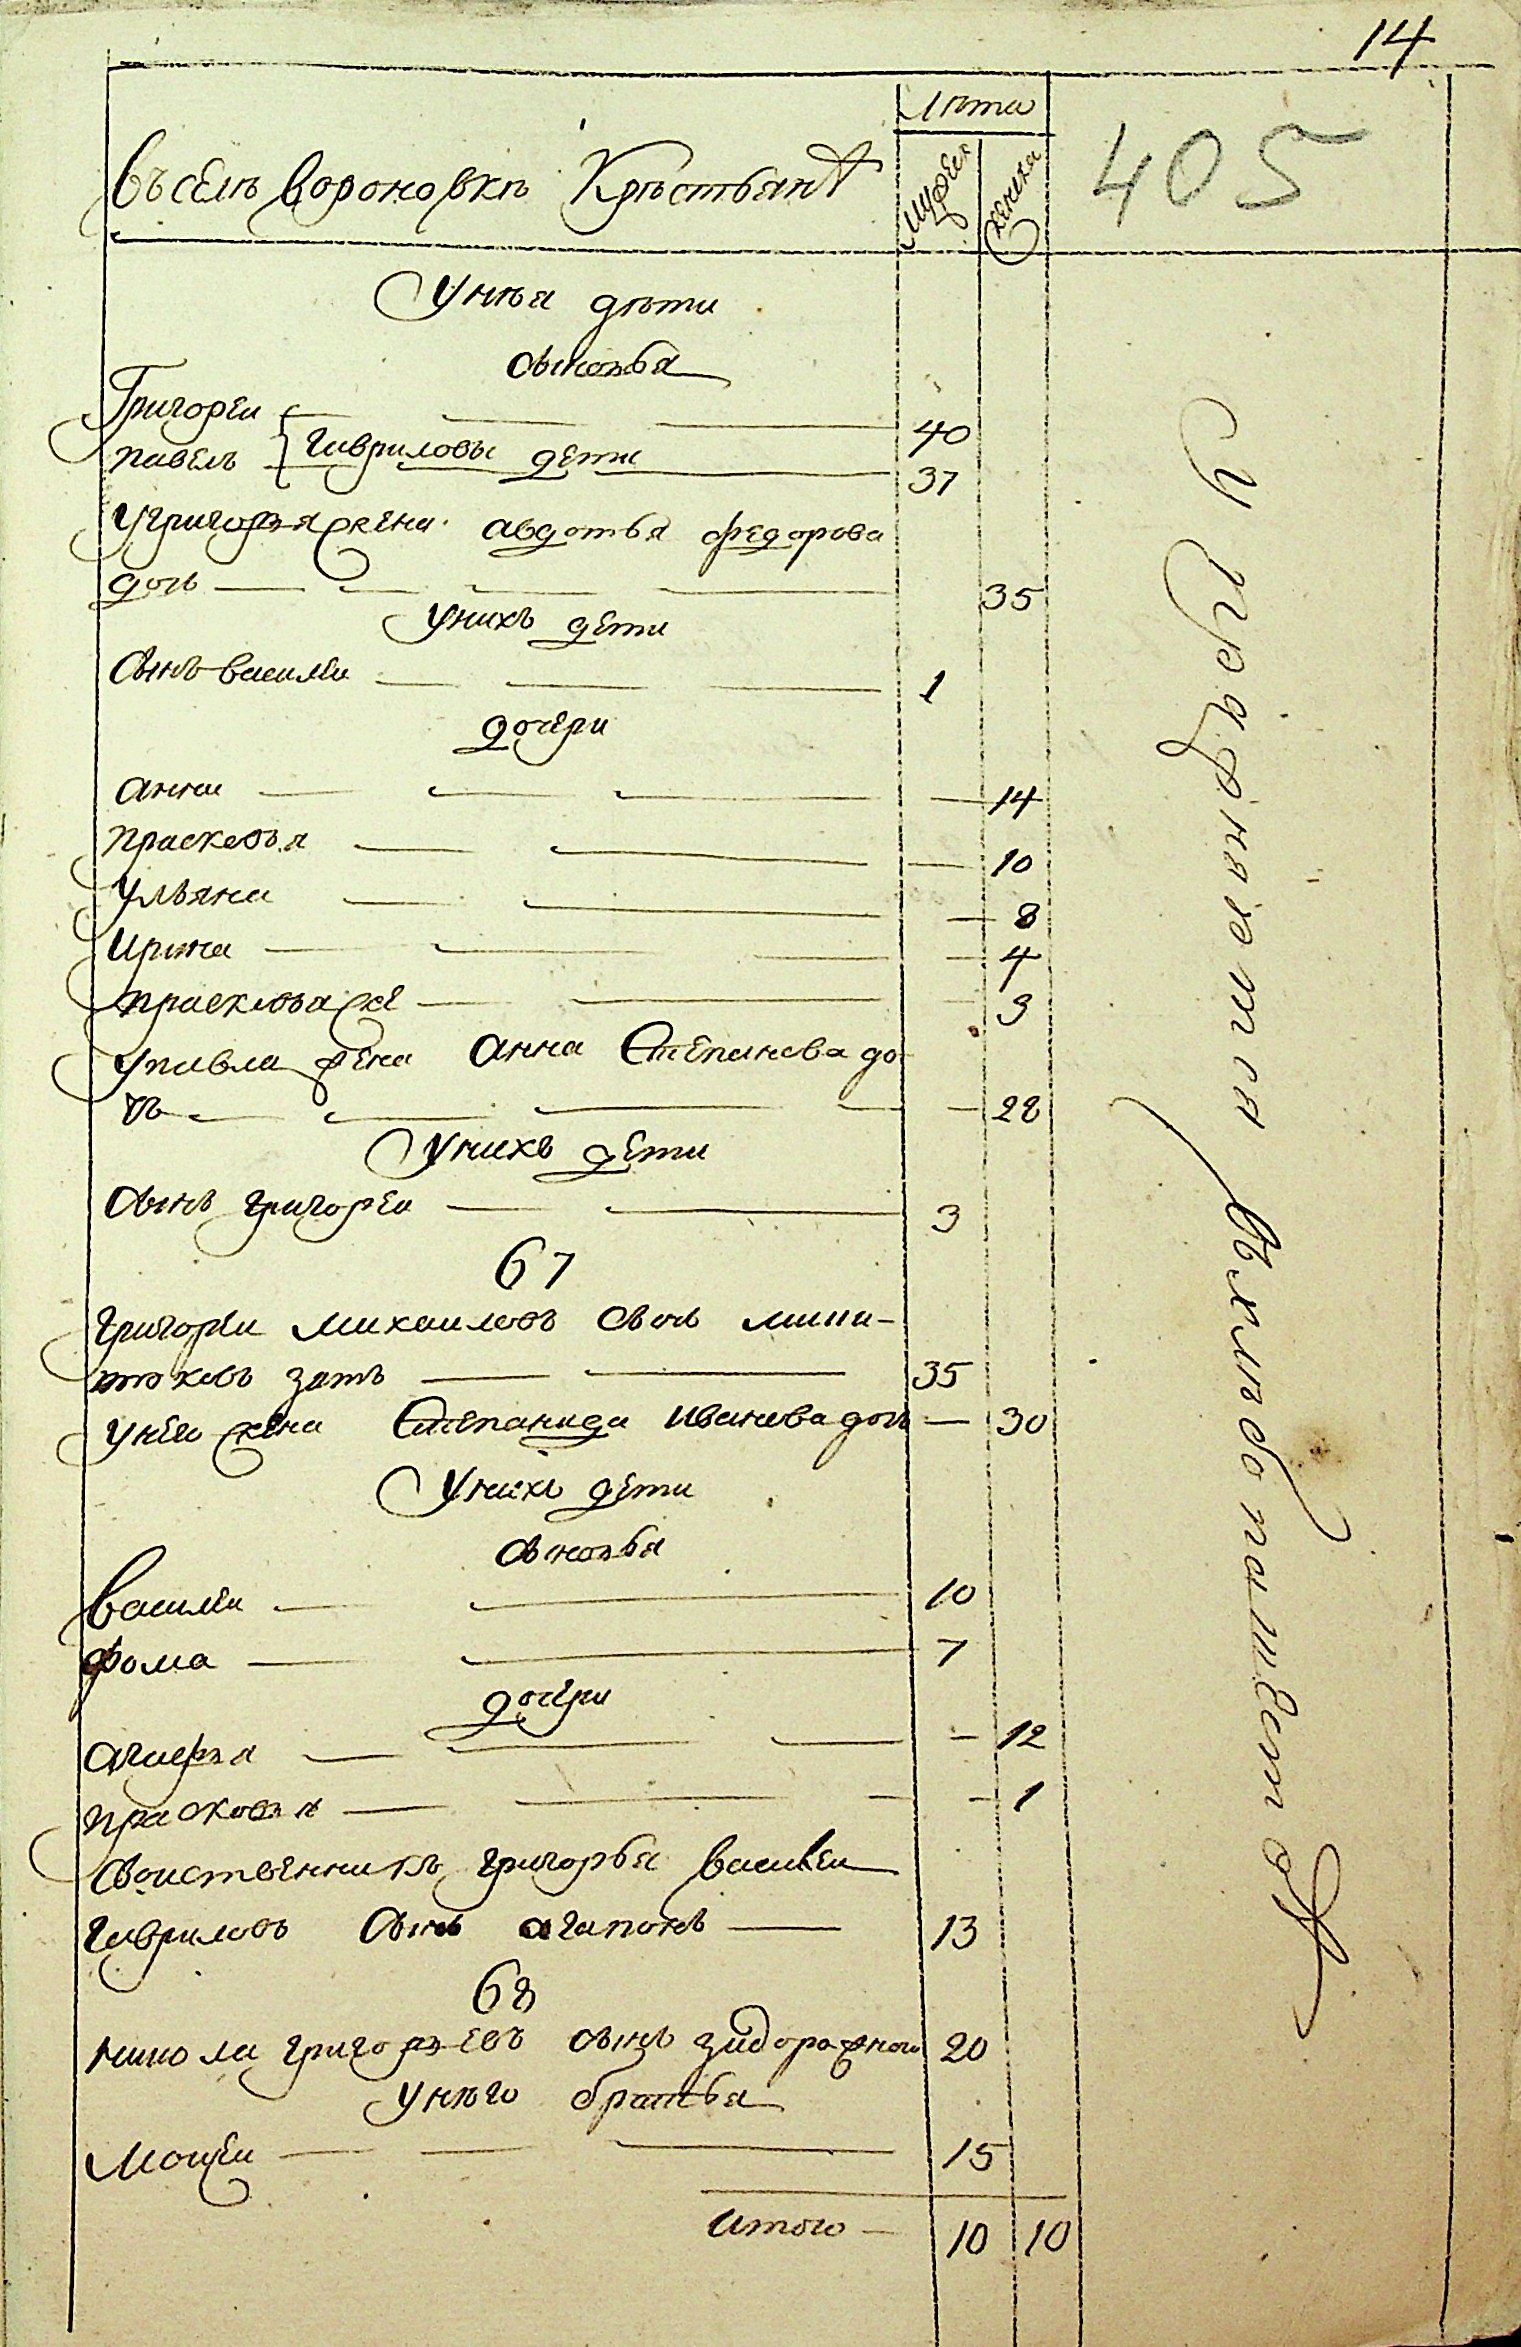 14
405
лѣта
въселѣ вороновкѣ Крѣстьянъ
мужеска
женска
Унѣя дѣти
сыновья
Григореи
Павелъ
Гавриловы дети
40
37
Угригорья жена авдотья федорова
дочь 35
Унихъ дети
сынъ василеи 1
дочери
анна 14
Прасковья 10
Ульяна 8
Ирина 4
прасковья же 3
Упавла жена анна Степанова до
чь 28
Унихъ дети
сынъ григореи 3
67
григореи михаиловъ сынъ
зять 35
Унего жена Степанида иванова дочь 30
Унихъ дети
сыновья
василеи 10
фома 7
дочери
агафья 12
прасковья 1
своиственникъ григорья василеи
гавриловъ сынъ агапонъ 13
68
григорьевъ сынъ 20
Унѣго братья
Мосеи 15
итого 10 10